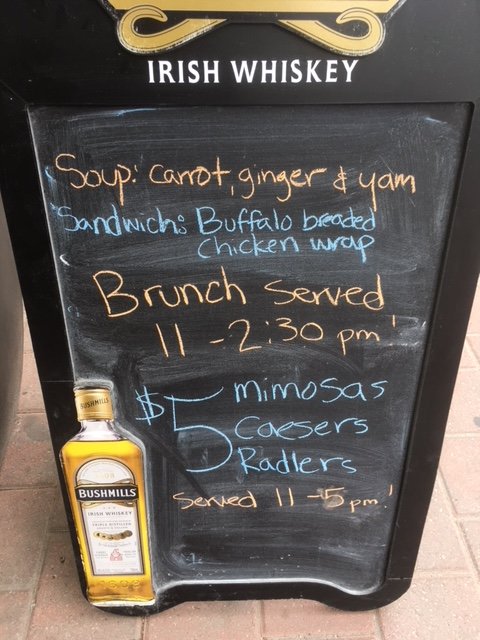 IRISH WHISKEY
Soup: Carrot, ginger & yam
Sandwich: Buffalo breaded
chicken wrap
Brunch served
11 - 2:30 pm!
$5 mimosas
Caesers
Radlers
Served 11 - 5 pm!
BUSHMILLS
BUSHMILLS
IRISH WHISKEY
TRIPLE DISTILLED